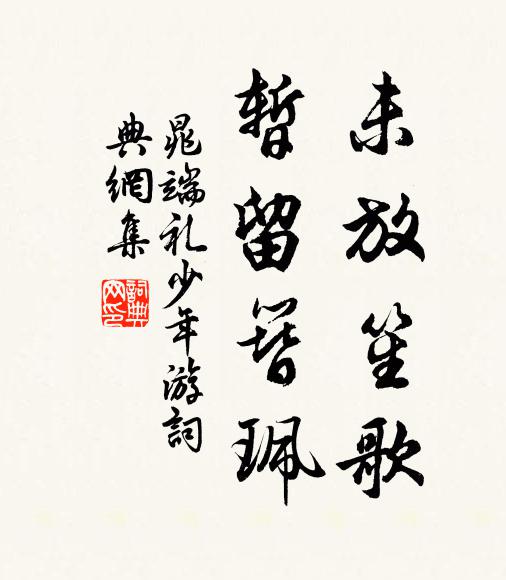 未放笙歌
暂留簪珮
晁端礼少年游詞
典網集
詞典
网印